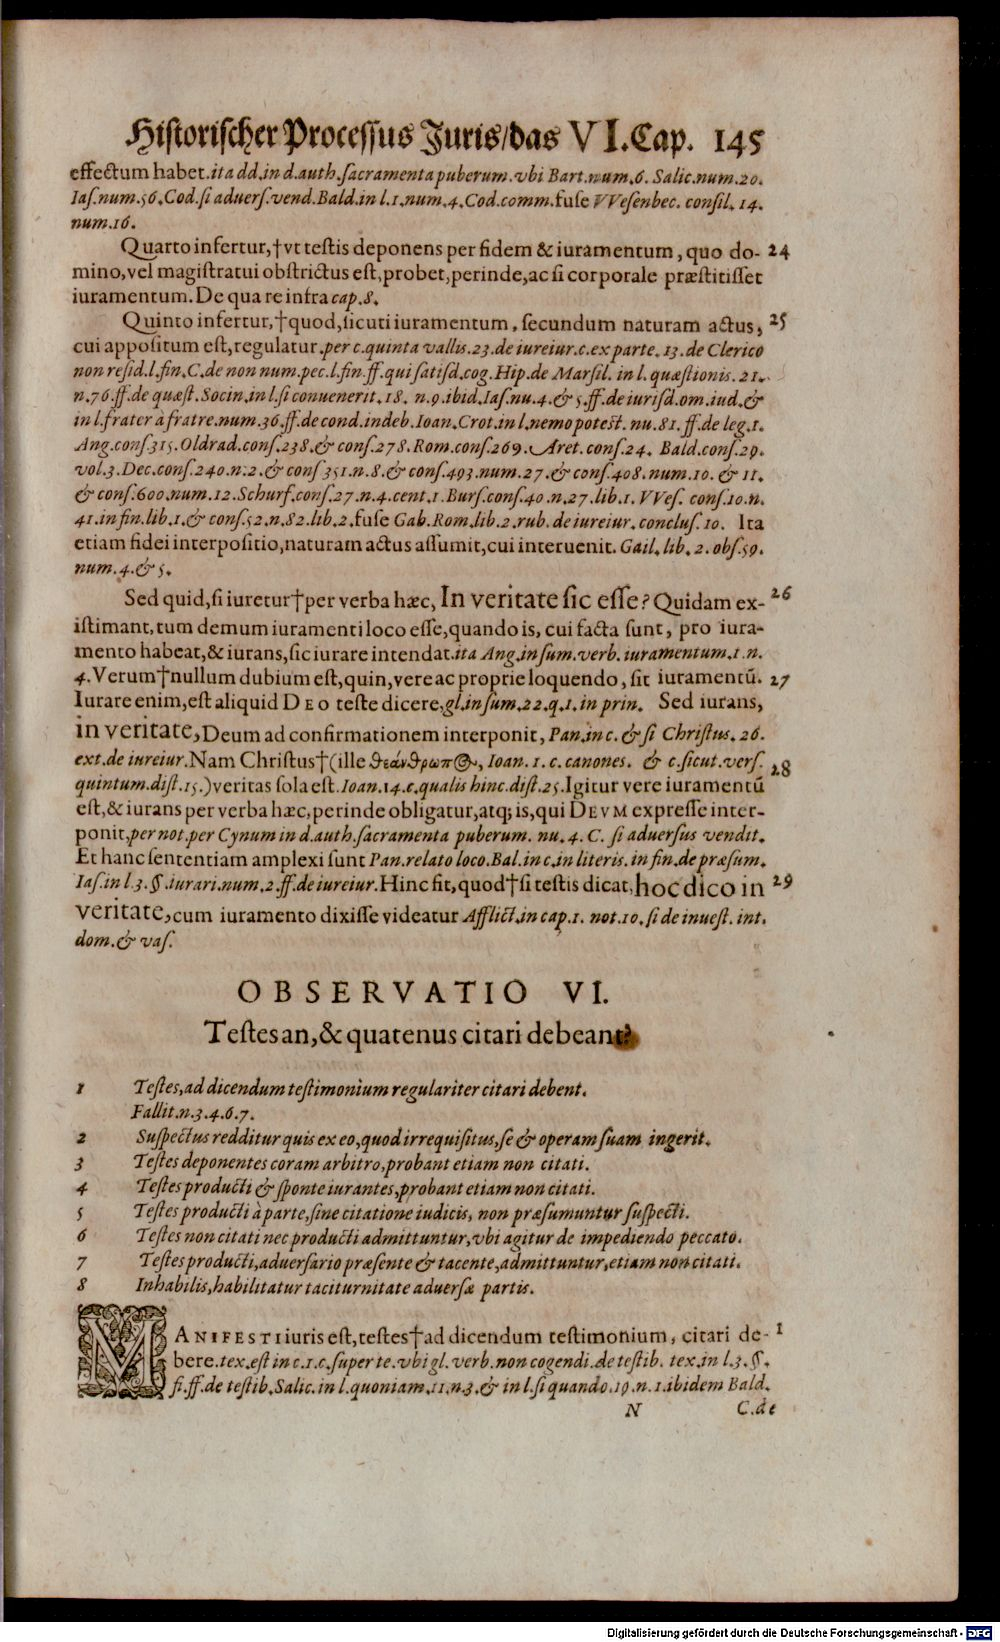 Historischer Processus Juris/das VI. Cap. 145
effectum habet. ita dd. in d. auth. sacramenta puberum. vbi Bart. num. 6. Salic. num. 20.
Ias. num. 56. Cod. si aduers. vend. Bald. in l. 1. num. 4. Cod. comm. fuse VVesenbec. consil. 14.
num. 16.
Quarto infertur, † vt testis deponens per fidem & iuramentum, quo do- 24
mino, vel magistratui obstrictus est, probet, perinde, ac si corporale præstitisset
iuramentum. De qua re infra cap. 8.
Quinto infertur, † quod, sicuti iuramentum, secundum naturam actus, 25
cui appositum est, regulatur. per c. quinta vallis. 23. de iureiur. c. ex parte. 13. de Clerico
non resid. l. fin. C. de non num. pec. l. fin. ff. qui satisd. cog. Hip. de Marsil. in l. quæstionis. 21.
n. 76. ff. de quæst. Socin. in l. si conuenerit. 18. n. 9. ibid. Ias. nu. 4. & 5. ff. de iurisd. om. iud. &
in l. frater à fratre. num. 36. ff. de cond. indeb. Ioan. Crot. in l. nemo potest. nu. 81. ff. de leg. 1.
Ang. cons. 315. Oldrad. cons. 238. & cons. 278. Rom. cons. 269. Aret. cons. 24. Bald. cons. 29.
vol. 3. Dec. cons. 240. n. 2. & cons 351. n. 8. & cons. 493. num. 27. & cons. 408. num. 10. & 11.
& cons. 600. num. 12. Schurf. cons. 27. n. 4. cent. 1. Burs. cons. 40. n. 27. lib. 1. VVes. cons. 10. n.
41. in fin. lib. 1. & cons. 52. n. 82. lib. 2. fuse Gab. Rom. lib. 2. rub. de iureiur. conclus. 10. Ita
etiam fidei interpositio, naturam actus assumit, cui interuenit. Gail. lib. 2. obs. 59.
num. 4. & 5.
Sed quid, si iuretur † per verba hæc, In veritate sic esse? Quidam ex- 26
istimant, tum demum iuramenti loco esse, quando is, cui facta sunt, pro iura-
mento habeat, & iurans, sic iurare intendat. ita Ang. in sum. verb. iuramentum. 1. n.
4. Verum † nullum dubium est, quin, vere ac proprie loquendo, sit iuramentũ. 27
Iurare enim, est aliquid DEO teste dicere, gl. in sum. 22. q. 1. in prin. Sed iurans,
in veritate, Deum ad confirmationem interponit, Pan. in c. & si Christus. 26.
ext. de iureiur. Nam Christus † (ille θεάνθρωπος, Ioan. 1. c. canones. & c. sicut. vers. 28
quintum. dist. 15.) veritas sola est. Ioan. 14. c. qualis hinc. dist. 25. Igitur vere iuramentũ
est, & iurans per verba hæc, perinde obligatur, atq; is, qui DEVM expresse inter-
ponit, per not. per Cynum in d. auth. sacramenta puberum. nu. 4. C. si aduersus vendit.
Et hanc sententiam amplexi sunt Pan. relato loco. Bal. in c. in literis. in fin. de præsum.
Ias. in l. 3. §. iurari. num. 2. ff. de iureiur. Hinc fit, quod † si testis dicat, hoc dico in 29
veritate, cum iuramento dixisse videatur Afflict. in cap. 1. not. 10. si de inuest. int.
dom. & vas.
OBSERVATIO VI.
Testes an, & quatenus citari debeant?
1 Testes, ad dicendum testimonium regulariter citari debent.
Fallit. n. 3. 4. 6. 7.
2 Suspectus redditur quis ex eo, quod irrequisitus, se & operam suam ingerit.
3 Testes deponentes coram arbitro, probant etiam non citati.
4 Testes producti & sponte iurantes, probant etiam non citati.
5 Testes producti à parte, sine citatione iudicis, non præsumuntur suspecti.
6 Testes non citati nec producti admittuntur, vbi agitur de impediendo peccato.
7 Testes producti, aduersario præsente & tacente, admittuntur, etiam non citati.
8 Inhabilis, habilitatur taciturnitate aduersæ partis.
MANIFESTI iuris est, testes † ad dicendum testimonium, citari de- 1
bere. tex. est in c. 1. c. super te. vbi gl. verb. non cogendi. de testib. tex. in l. 3. §.
fi. ff. de testib. Salic. in l. quoniam. 11. n. 3. & in l. si quando. 19. n. 1. ibidem Bald.
N C. de
Digitalisierung gefördert durch die Deutsche Forschungsgemeinschaft - DFG